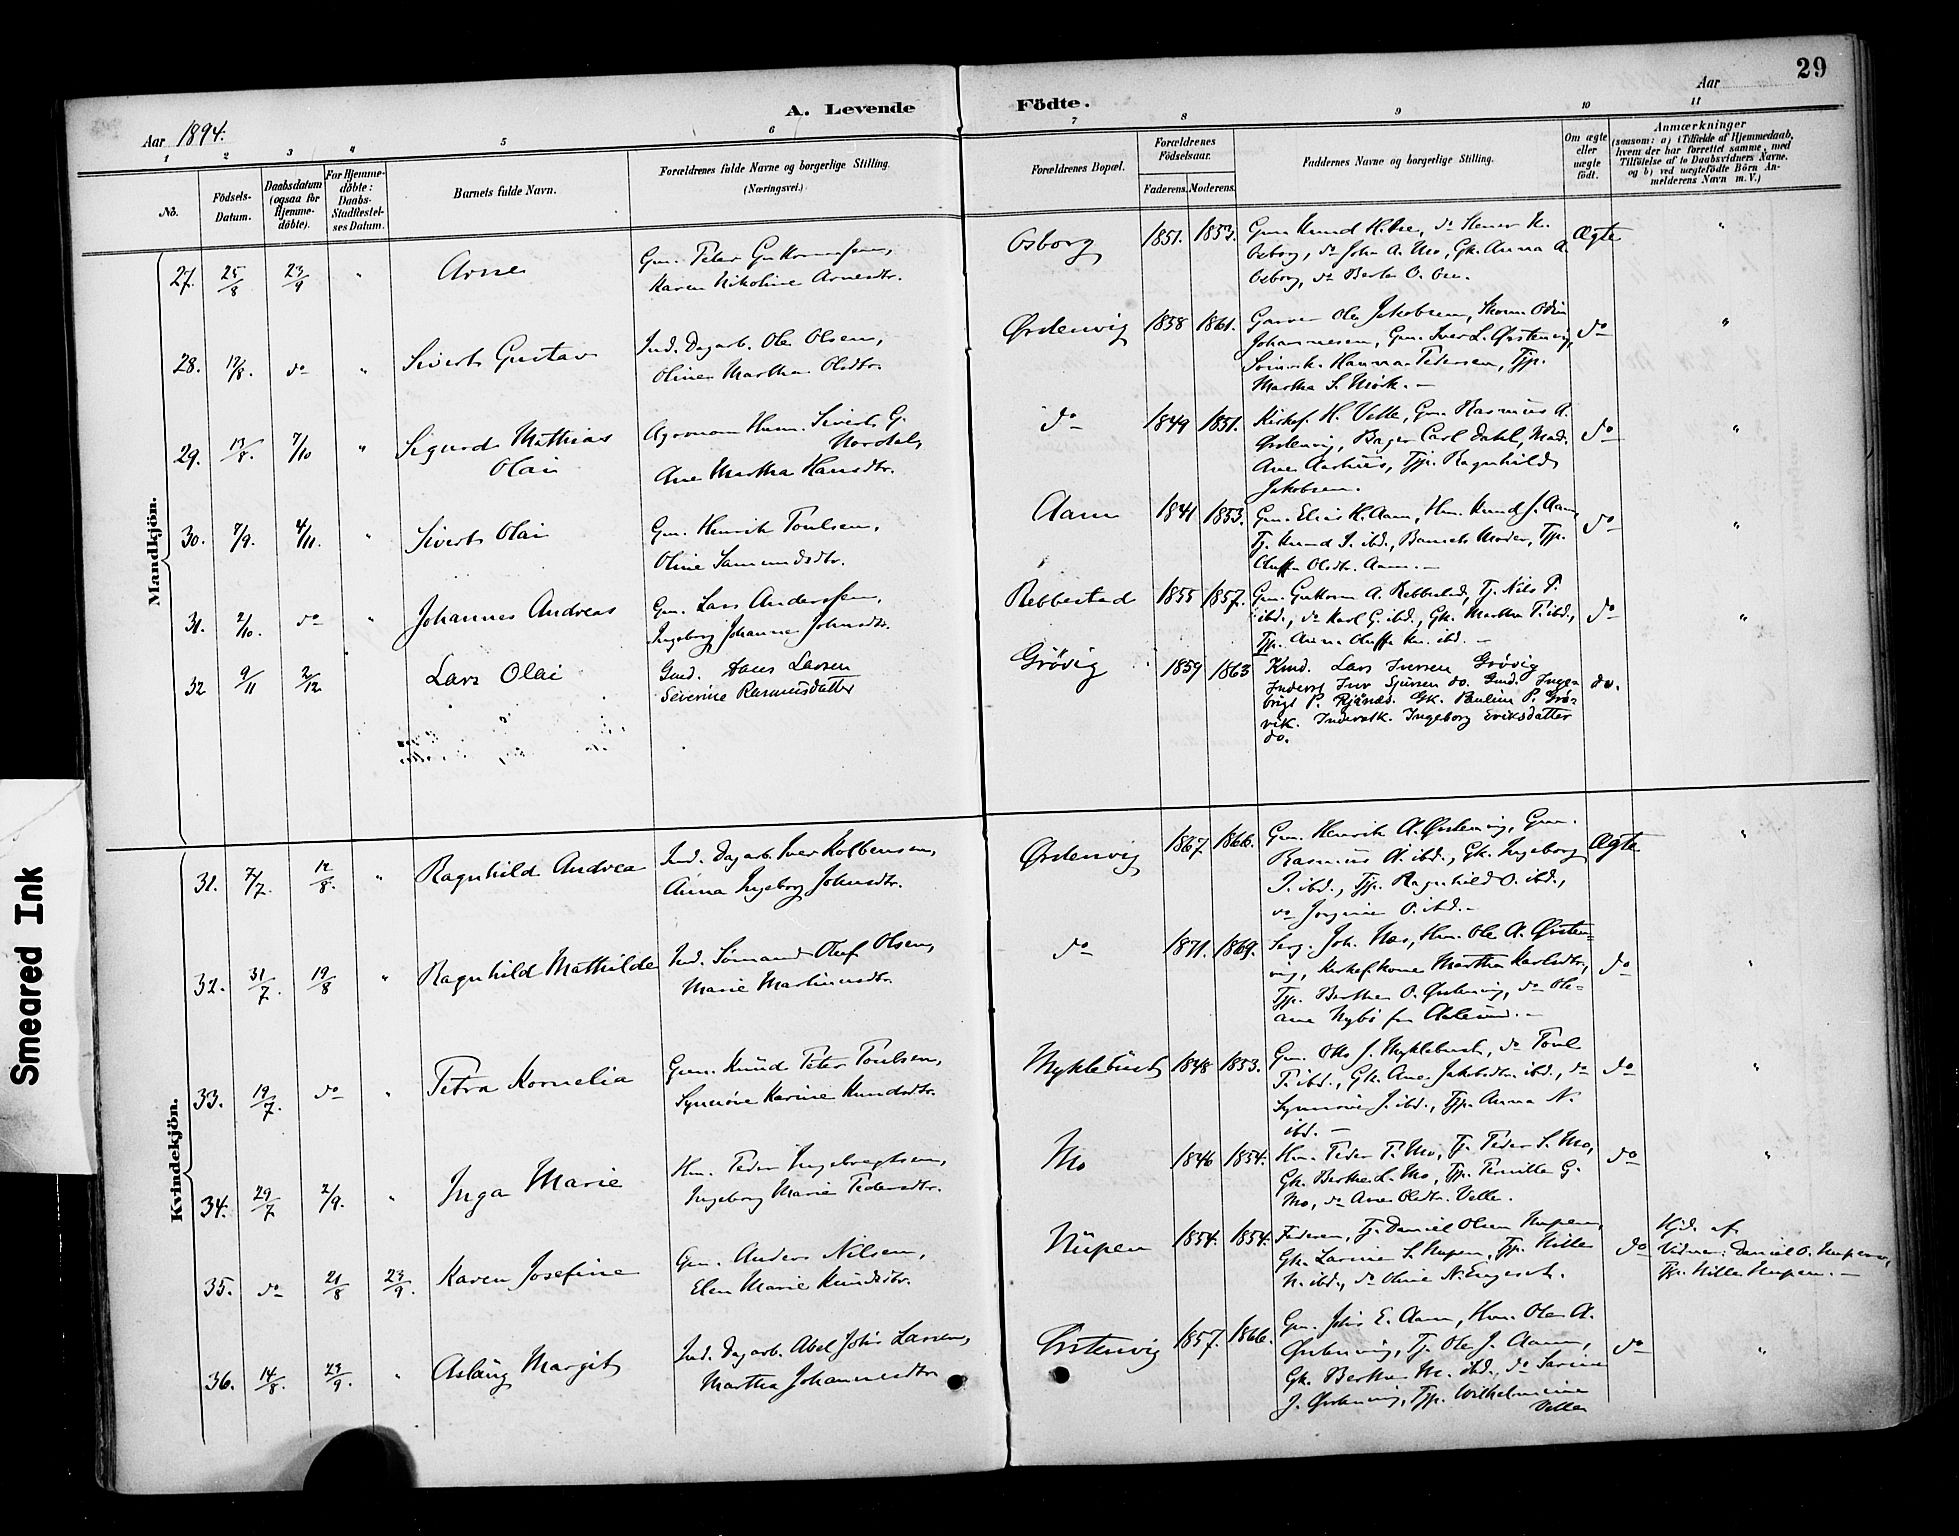 29
Aar 1894.
A. Levende
Födte.
Aar
1 2 3 4 5 6 7 8 9 10 11
No.
Födsels-
Datum.
Daabsdatum
(ogsaa for
Hjemme-
døbte).
For Hjemme-
døbte:
Daabs-
Stadfæstel-
ses Datum.
Barnets fulde Navn.
Forældrenes fulde Navne og borgerlige Stilling.
(Næringsvei.)
Forældrenes Bopæl.
Forældrenes
Födselsaar.
Faderens. Moderens.
Faddernes Navne og borgerlige Stilling.
Om ægte
eller
uægte
født.
Anmærkninger
(saasom: a) i Tilfælde af Hjemmedaab,
hvem der har forrettet samme, med
Tilföielse af to Daabsvidners Navne.
og b) ved uægtefödte Börn An-
melderens Navn m. V.)
Mandkjön.
27. 25/8 23/9 " Arne
Gm. Peter Guttormsen,
Karen Nikoline Arnesdtr.
Osborg 1851. 1853.
Gm. Knud H.
Osborg, do John A. Mo, Gk. Anna A.
Osborg, do Berte O.
Ægte "
28. 12/8. do " Sivert Gustav
Ind. Dagarb. Ole Olsen,
Oline Martha Olsdtr.
Ørstenvig 1858 1861.
Garver Ole Jakobsen, Odin
Johannesen, Gm. Iver L. Ørstenvig,
Hanna Pedersen, Tjp.
Martha S. Mørk. —
do "
29. 13/8. 7/10 " Sigurd Mathias
Olai
Agronom Hmn. Sivert G.
Nordal,
Ane Martha Hansdtr.
do 1849 1851.
Kirkes. H. Velle, Gm. Rasmus A.
Ørstenvig, Bager Carl Dahl, Mad.
Ane Aarhus, Tjp. Ragnhild
Jakobsen.
do "
30. 7/9. 4/11. " Sivert Olai
Gm. Henrik Poulsen,
Oline Samundsdtr.
Aam 1841 1853.
Gm. Elias K. Aam, Hm. Knud J. Aam,
Tj. Knud I. ibd., Barnets Moder, Tjp.
Oluffa Olsdtr. Aam. —
do "
31. 2/10. do " Johannes Andreas
Gm. Lars Anderssen,
Ingeborg Johanne Johnsdtr.
Rebbestad 1855 1857.
Gm. Guttorm A. Rebbestad, Tj. Nils P.
ibd., do Karl G. ibd., Gk. Martha P. ibd.,
Tjp. Anna Oluffa Kn. ibd. —
do "
32 9/11 2/12 Lars Olai
Gmd. Hans Larsen
Severine Rasmusdatter
Grövig 1859 1863
Kmd. Lars Iversen Grøvig
Inderst Iver Sjursen do. Gmd. Inge-
brigt P. Rjånes. Gk. Pauline P. Grø-
vik. Inderstk. Ingeborg Eriksdatter
do.
do.
Kvindekjön.
31. 7/7. 12/8. " Ragnhild Andrea
Ind. Dagarb. Iver Kolbensen,
Anna Ingeborg Johnsdtr.
Ørstenvig 1867. 1866.
Gm. Henrik A. Ørstenvig, Gm.
Rasmus A. ibd., Gk. Ingeborg
P. ibd., Tjp. Ragnhild O. ibd.,
do Jorgine O. ibd. —
Ægte "
32. 31/7. 19/8 " Ragnhild Mathilde
Ind. Sømand Oluf Olsen,
Marie Martinusdtr.
do 1871. 1869.
Serg. Joh. Næs, Hm. Ole A. Ørsten-
vig, Kirkes. kone Martha Karlsdtr.,
Tjp. Berthe O. Ørstenvig, do Ole-
ane Nybø fra Aalesund. —
do "
33. 19/7. do " Petra Kornelia
Gm. Knud Peter Poulsen,
Synnøve Karine Knudsdtr.
Myklebust 1848 1853.
Gm. Otto J. Myklebust, do Poul
P. ibd., Gk. Ane Jakobsdtr. ibd., do
Synnøve J. ibd., Tjp. Anna N.
ibd. —
do "
34. 29/7 2/9. " Inga Marie
Hm. Peder Ingebrigtsen,
Ingeborg Marie Pedersdtr.
Mo 1846 1854.
Hm. Peder P. Mo, Tj. Peder S. Mo,
Gk. Berthe L. Mo, Tjp. Pernille G.
Mo, do Ane Olsdtr. Velle.
do "
35. do 21/8 23/9. Karen Josefine
Gm. Anders Nilsen,
Elen Marie Knudsdtr.
Nupen 1854. 1854.
Faderen, Tj. Daniel Olsen Nupen,
Gk. Larine S. Nupen, Tjp. Hille
N. ibd., do Oline N. Engeset.
do
Hjd. af
Vidner: Daniel O. Nupen,
Tjp. Hille Nupen. —
36. 14/8. 23/9. " Aslaug Margit
Ind. Dagarb. Abel Johs Larsen,
Martha Johannesdtr.
Ørstenvig 1857. 1866.
Gm. Johs E. Aam, Hm. Ole A.
Ørstenvig, Tj. Ole J. Aam,
Gk. Berthe M. ibd., do Sarine
J. Ørstenvig, Tjp. Wilhelmine
Velle
do "
Smeared Ink